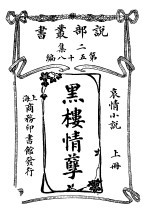 説部叢書
二集
第五十八編
哀情小說
上冊
黑樓情孽
上海
商務印書館發行